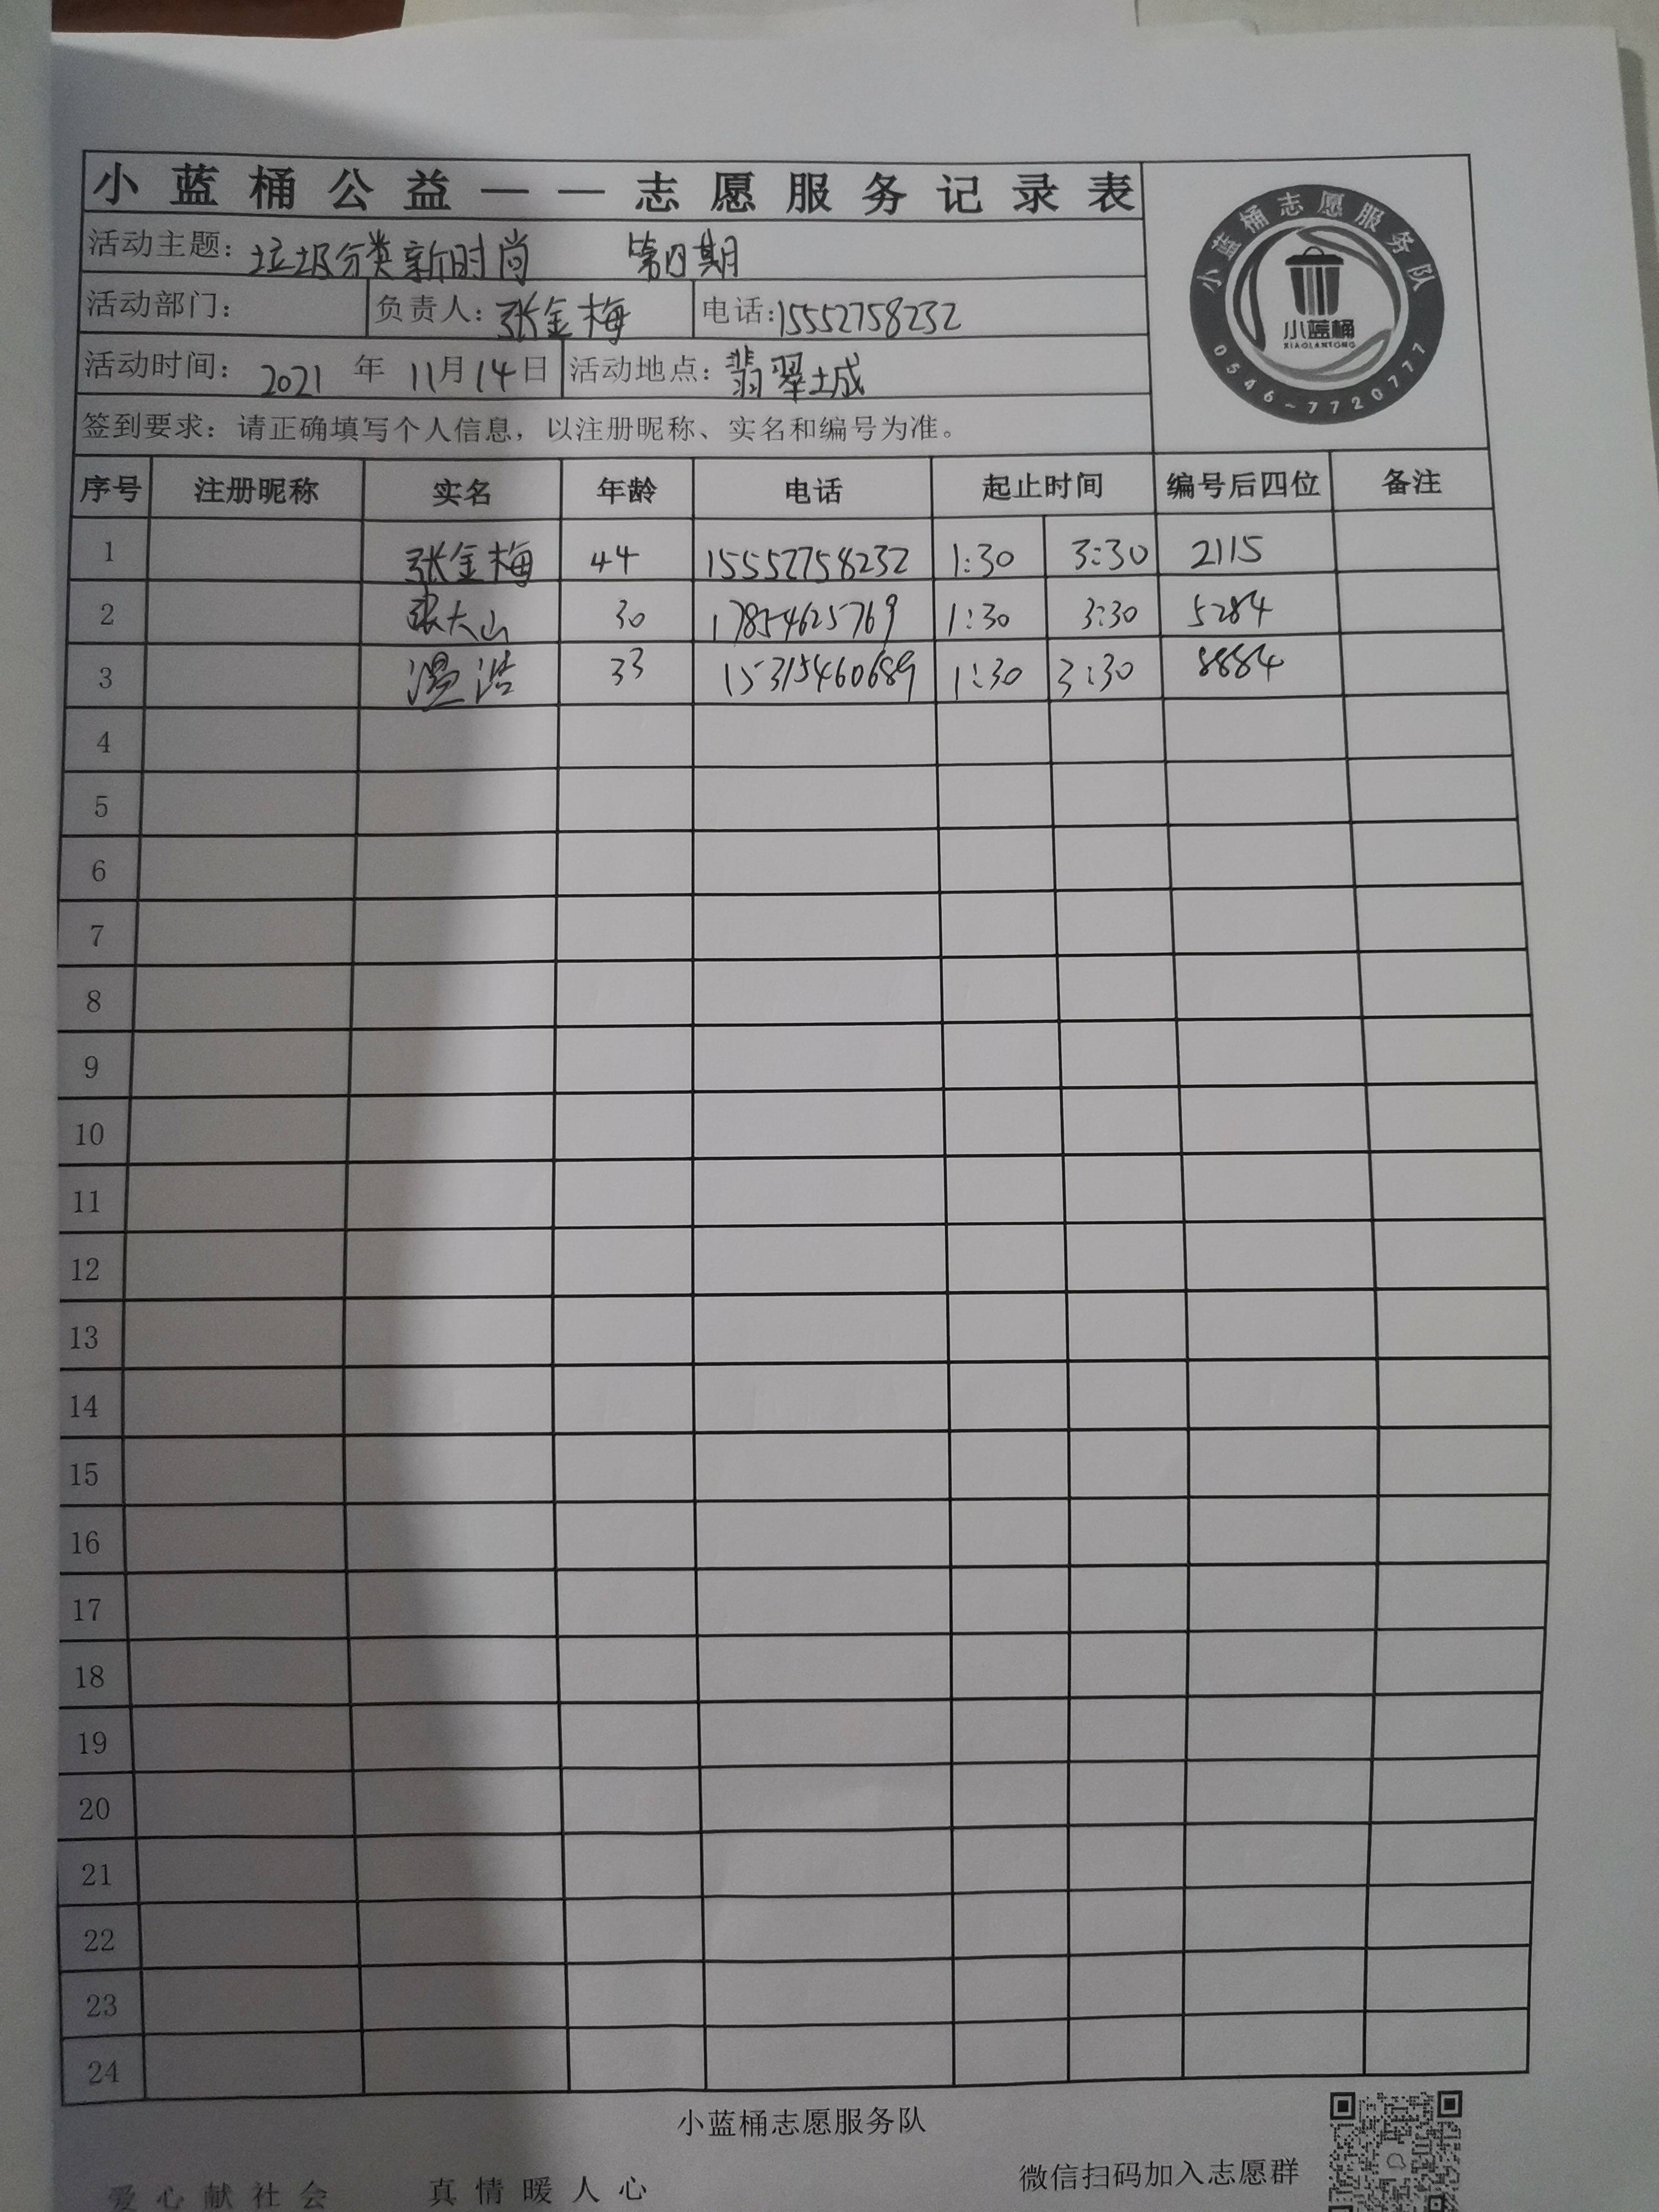 小蓝桶公益——志愿服务记录表
活动主题：垃圾分类新时尚 第四期
活动部门： 负责人：张金梅 电话：15552758232
活动时间：2021年11月14日 活动地点：翡翠城
签到要求：请正确填写个人信息，以注册昵称、实名和编号为准。
小蓝桶志愿服务队
小蓝桶
XIAOLANTONG
0546-7720777
序号 注册昵称 实名 年龄 电话 起止时间 编号后四位 备注
1 张金梅 44 15552758232 1:30 3:30 2115
2 张大山 30 17854625769 1:30 3:30 5284
3 温浩 33 15315460689 1:30 3:30 8884
4
5
6
7
8
9
10
11
12
13
14
15
16
17
18
19
20
21
22
23
24
小蓝桶志愿服务队
微信扫码加入志愿群
爱心献社会 真情暖人心